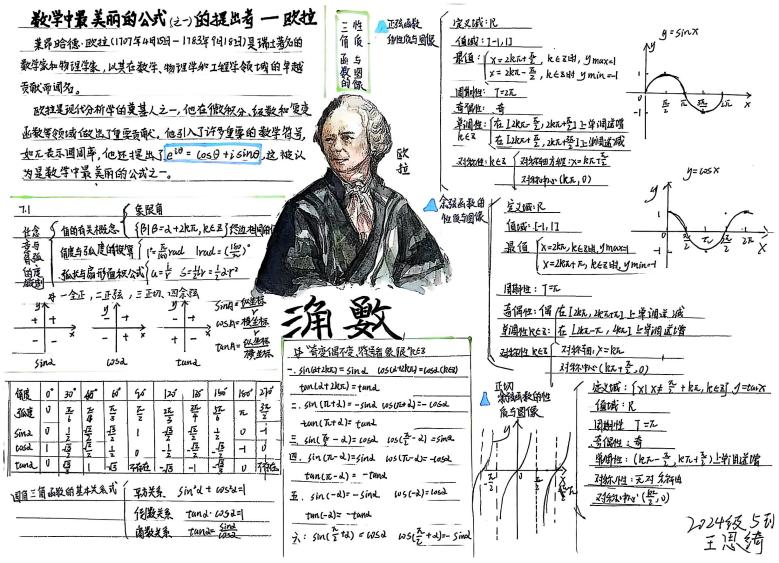 数学中最美丽的公式(之一)的提出者一欧拉
莱昂哈德·欧拉(1707年4月15日-1783年9月18日)是瑞士著名的
数学家和物理学家,以其在数学、物理学和工程学领域的卓越
贡献而闻名。
欧拉是现代分析学的奠基人之一,他在微积分、级数和复变
函数等领域做出了重要贡献。他引入了许多重要的数学符号,
如π表示圆周率,他还提出了e^iθ=cosθ+isinθ,这被认
为是数学中最美丽的公式之一。
三角函数的
性质与图像
欧拉
三角函數
7.1
任意角与弧度制
象限角
角的有关概念
{β|β=α+2kπ,k∈Z}终边相同的角
角度与弧度的换算
1°=π/180 rad 1rad=(180/π)°
弧长与扇形面积公式
一全正,二正弦,三正切,四余弦
y
x
+ +
- -
sinα
y
x
- +
- +
cosα
y
x
- +
+ -
tanα
sinA=纵坐标/r
cosA=横坐标/r
tanA=纵坐标/横坐标
角度 0° 30° 45° 60° 90° 120° 135° 150° 180° 270°
弧度 0 π/6 π/4 π/3 π/2 2π/3 3π/4 5π/6 π 3π/2
sinα 0 1/2 √2/2 √3/2 1 √3/2 √2/2 1/2 0 -1
cosα 1 √3/2 √2/2 1/2 0 -1/2 -√2/2 -√3/2 -1 0
tanα 0 √3/3 1 √3 不存在 -√3 -1 -√3/3 0 不存在
同角三角函数的基本关系式
平方关系 sin²α+cos²α=1
倒数关系 tanα·cotα=1
商数关系 tanα=sinα/cosα
"奇变偶不变,符号看象限"k∈Z
一.sin(α+2kπ)=sinα cos(α+2kπ)=cosα(k∈Z)
tan(α+2kπ)=tanα
二.sin(π+α)=-sinα cos(π+α)=-cosα
tan(π+α)=tanα
三.sin(π/2-α)=cosα cos(π/2-α)=sinα
四.sin(π-α)=sinα cos(π-α)=-cosα
tan(π-α)=-tanα
五.sin(-α)=-sinα cos(-α)=cosα
tan(-α)=-tanα
六:sin(π/2+α)=cosα cos(π/2+α)=-sinα
正弦函数
的性质与图像
定义域:R
值域:[-1,1]
最值:
x=2kπ+π/2,k∈Z时,ymax=1
x=2kπ-π/2,k∈Z时ymin=-1
周期性:T=2π
奇偶性:奇
单调性:
k∈Z
在[2kπ-π/2,2kπ+π/2]上单调递增
在[2kπ+π/2,2kπ+3π/2]上单调递减
对称性:k∈Z
对称轴方程:x=kπ+π/2
对称中心(kπ,0)
y=sinx
y
1
-1
π/2 π 3π/2 2π x
余弦函数的
性质与图像
定义域:R
值域:[-1,1]
最值
x=2kπ,k∈Z时,ymax=1
x=2kπ+π,k∈Z时,ymin=-1
周期性:T=π
奇偶性:偶
在[2kπ,2kπ+π]上单调递减
单调性k∈Z:
对称性k∈Z
对称轴:x=kπ
对称中心(kπ+π/2,0)
y=cosx
y
1
-1
π/2 π 3π/2 2π x
正切
函数的性
质与图像
y
定义域:{x|x≠π/2+kπ,k∈Z} y=tanx
值域:R
周期性 T=π
奇偶性:奇
单调性:(kπ-π/2,kπ+π/2)上单调递增
对称性:无对称轴
对称中心(kπ/2,0)
2024级5班
王恩绮